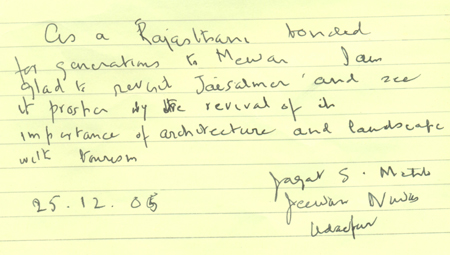 As a Rajasthani bonded
for generations to Mewar I am
glad to revisit Jaisalmer and see
it prosper by the revival of its
importance of architecture and landscape
with tourism
Jagat S. Mehta
25.12.05 Jeewan Niwas
Udaipur